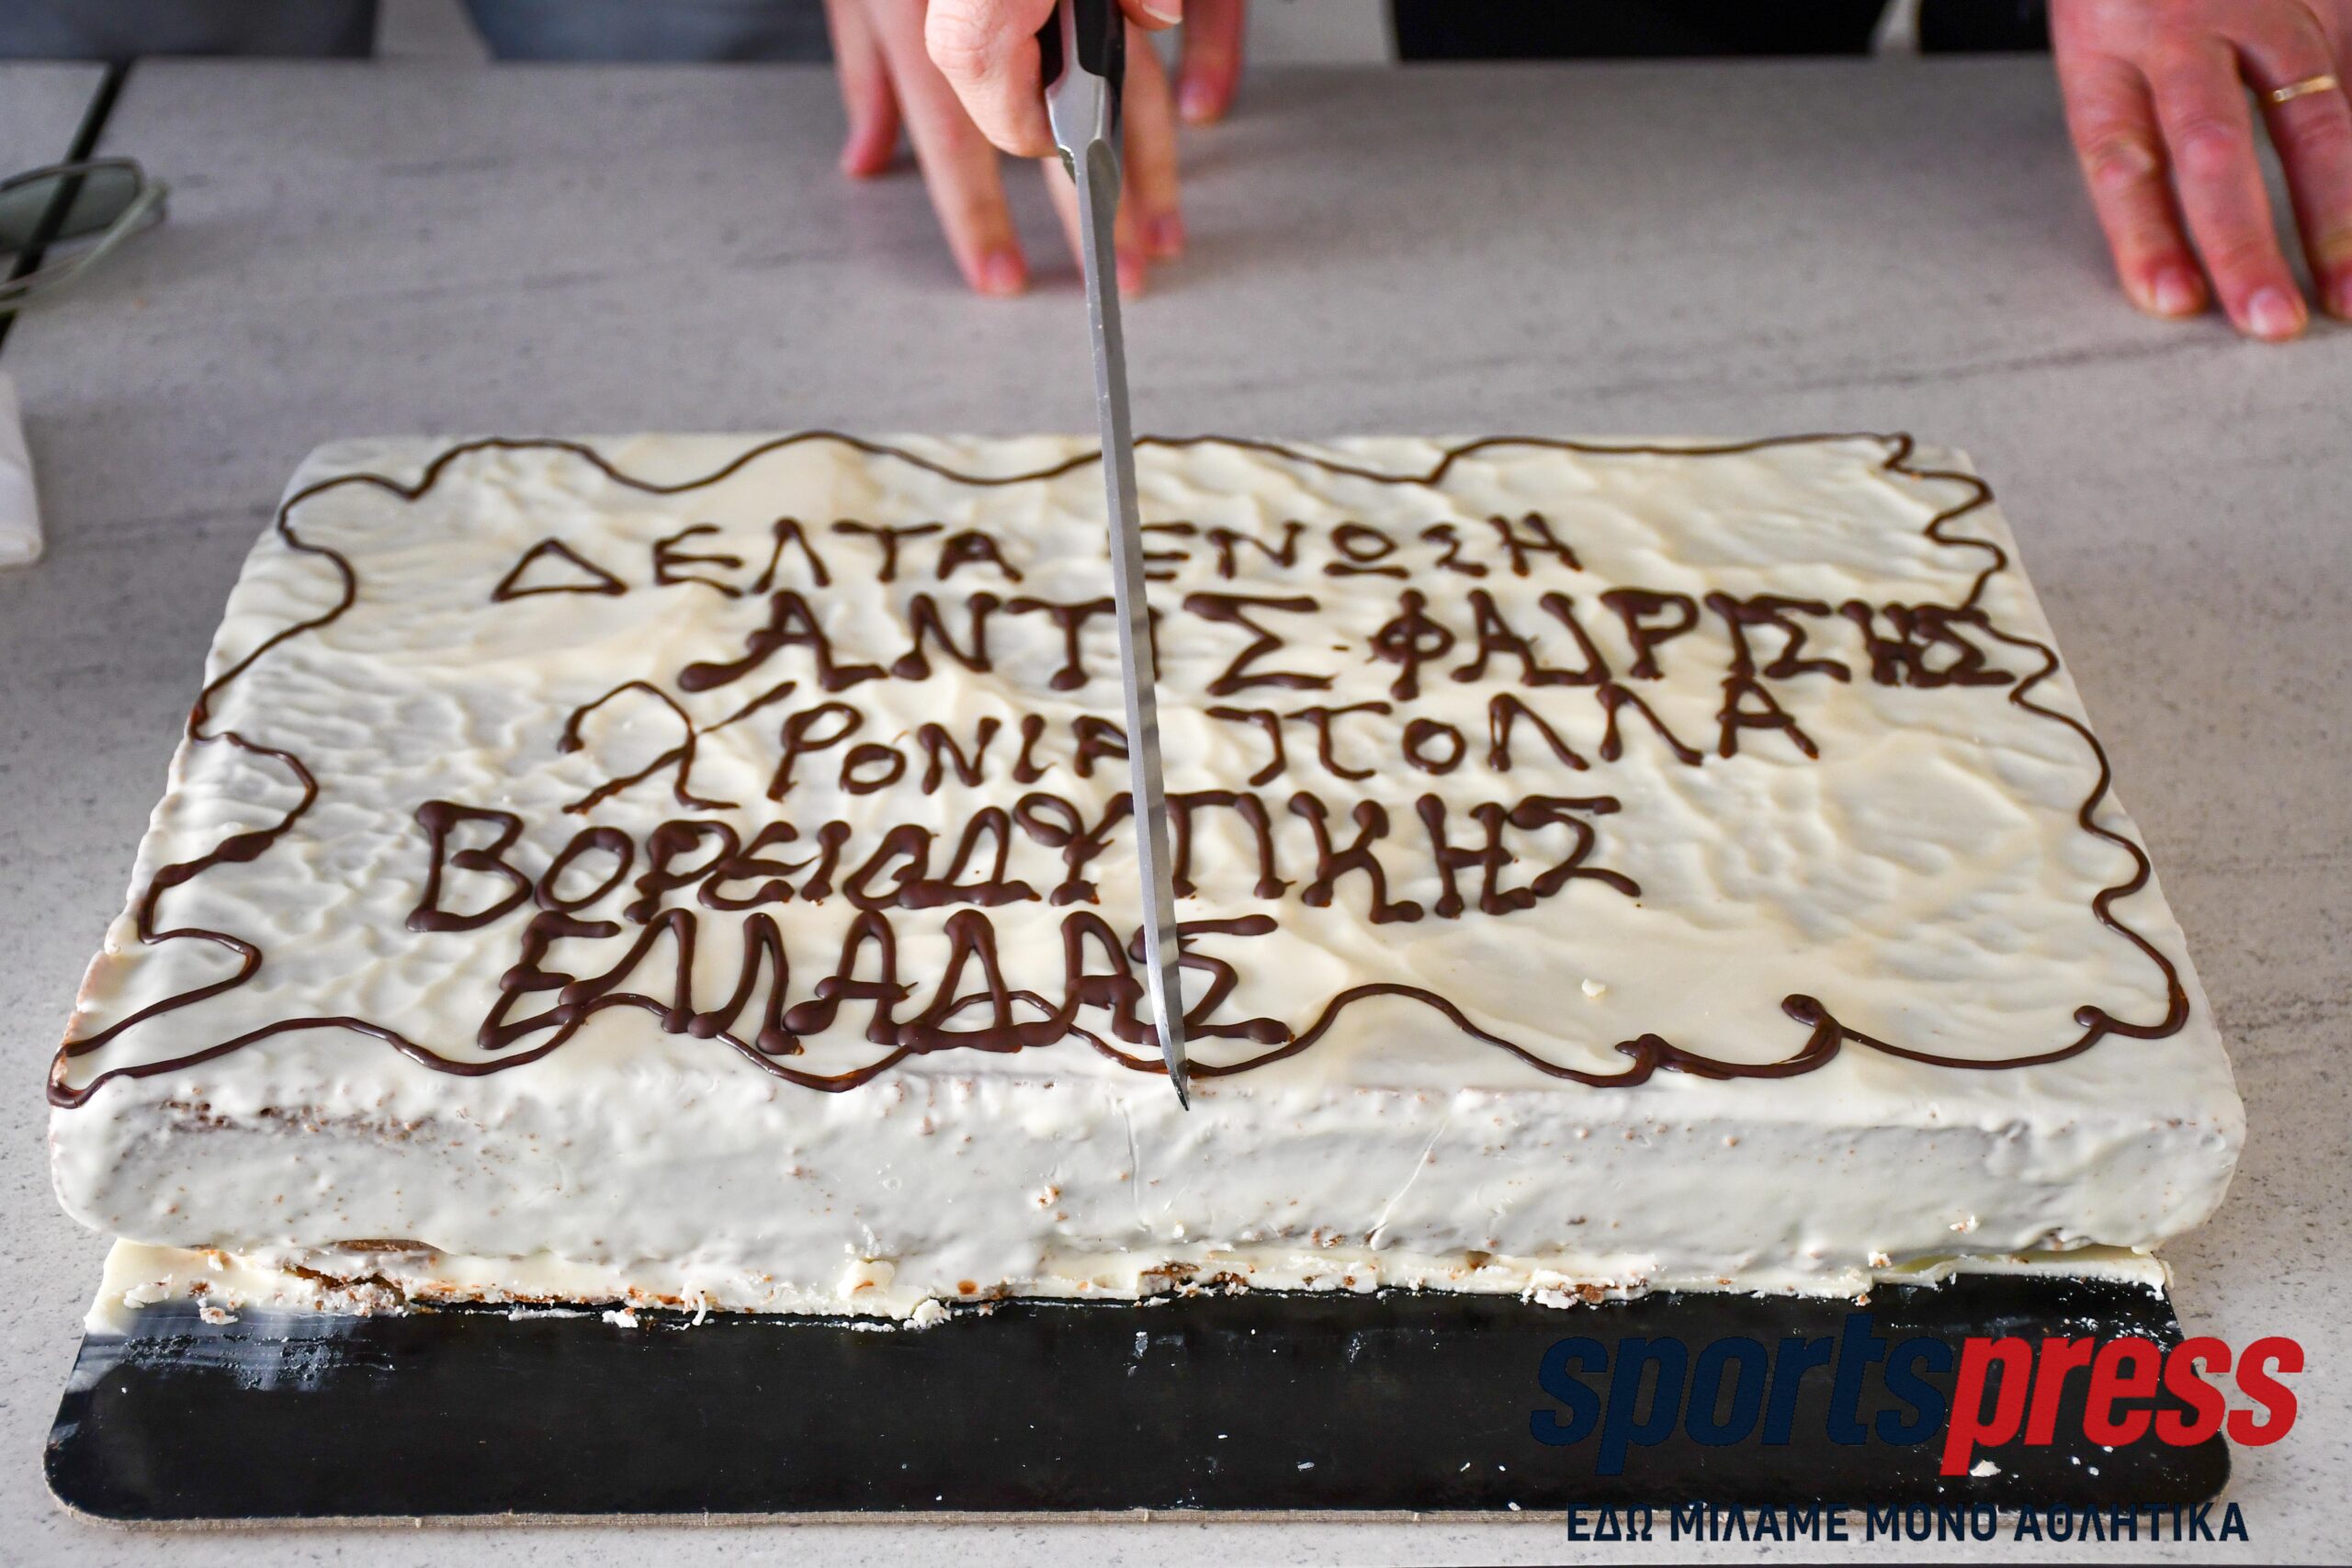 ΔΕΛΤΑ ΕΝΩΣΗ
ΑΝΤΙΣΦΑΙΡΙΣΗΣ
ΧΡΟΝΙΑ ΠΟΛΛΑ
ΒΟΡΕΙΟΔΥΤΙΚΗΣ
ΕΛΛΑΔΑΣ
sportspress
ΕΔΩ ΜΙΛΑΜΕ ΜΟΝΟ ΑΘΛΗΤΙΚΑ